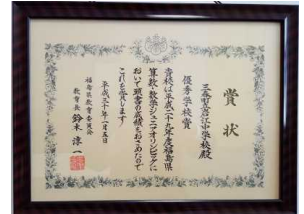 賞状
三春町立岩江中学校殿
優秀学校賞
貴校は平成二十九年度福島県
算数・数学ジュニアオリンピックに
おいて頭書の成績をおさめたので
これを賞します
平成三十年一月五日
福島県教育委員会
教育長 鈴木淳一